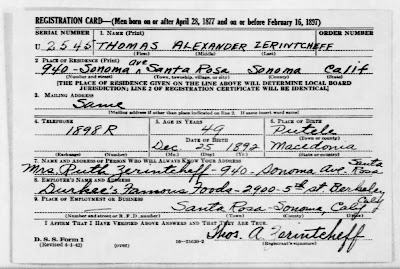 REGISTRATION CARD—(Men born on or after April 28, 1877 and on or before February 16, 1897)
SERIAL NUMBER 1. NAME (Print) ORDER NUMBER
U 2545 THOMAS ALEXANDER ZERINTCHEFF
(First) (Middle) (Last)
2. PLACE OF RESIDENCE (Print)
940-Sonoma ave Santa Rosa Sonoma Calif
(Number and street) (Town, township, village, or city) (County) (State)
[THE PLACE OF RESIDENCE GIVEN ON THE LINE ABOVE WILL DETERMINE LOCAL BOARD
JURISDICTION; LINE 2 OF REGISTRATION CERTIFICATE WILL BE IDENTICAL]
3. MAILING ADDRESS
Same
[Mailing address if other than place indicated on line 2. If same insert word same]
4. TELEPHONE 5. AGE IN YEARS 6. PLACE OF BIRTH
1898R 49 Putele
DATE OF BIRTH (Town or county)
Dec. 25 1892 Macedonia
(Exchange) (Number) (Mo.) (Day) (Yr.) (State or country)
7. NAME AND ADDRESS OF PERSON WHO WILL ALWAYS KNOW YOUR ADDRESS
Mrs. Ruth Zerintcheff-940-Sonoma Ave. Santa Rosa
8. EMPLOYER'S NAME AND ADDRESS
Durkee's Famous Foods-2900-5th st. Berkeley Calif
9. PLACE OF EMPLOYMENT OR BUSINESS
Santa Rosa-Sonoma, Calif
(Number and street or R. F. D. number) (Town) (County) (State)
I AFFIRM THAT I HAVE VERIFIED ABOVE ANSWERS AND THAT THEY ARE TRUE.
D. S. S. Form 1
(Revised 4-1-42) (over) 16—21630-2
Thos. A. Zerintcheff
(Registrant's signature)